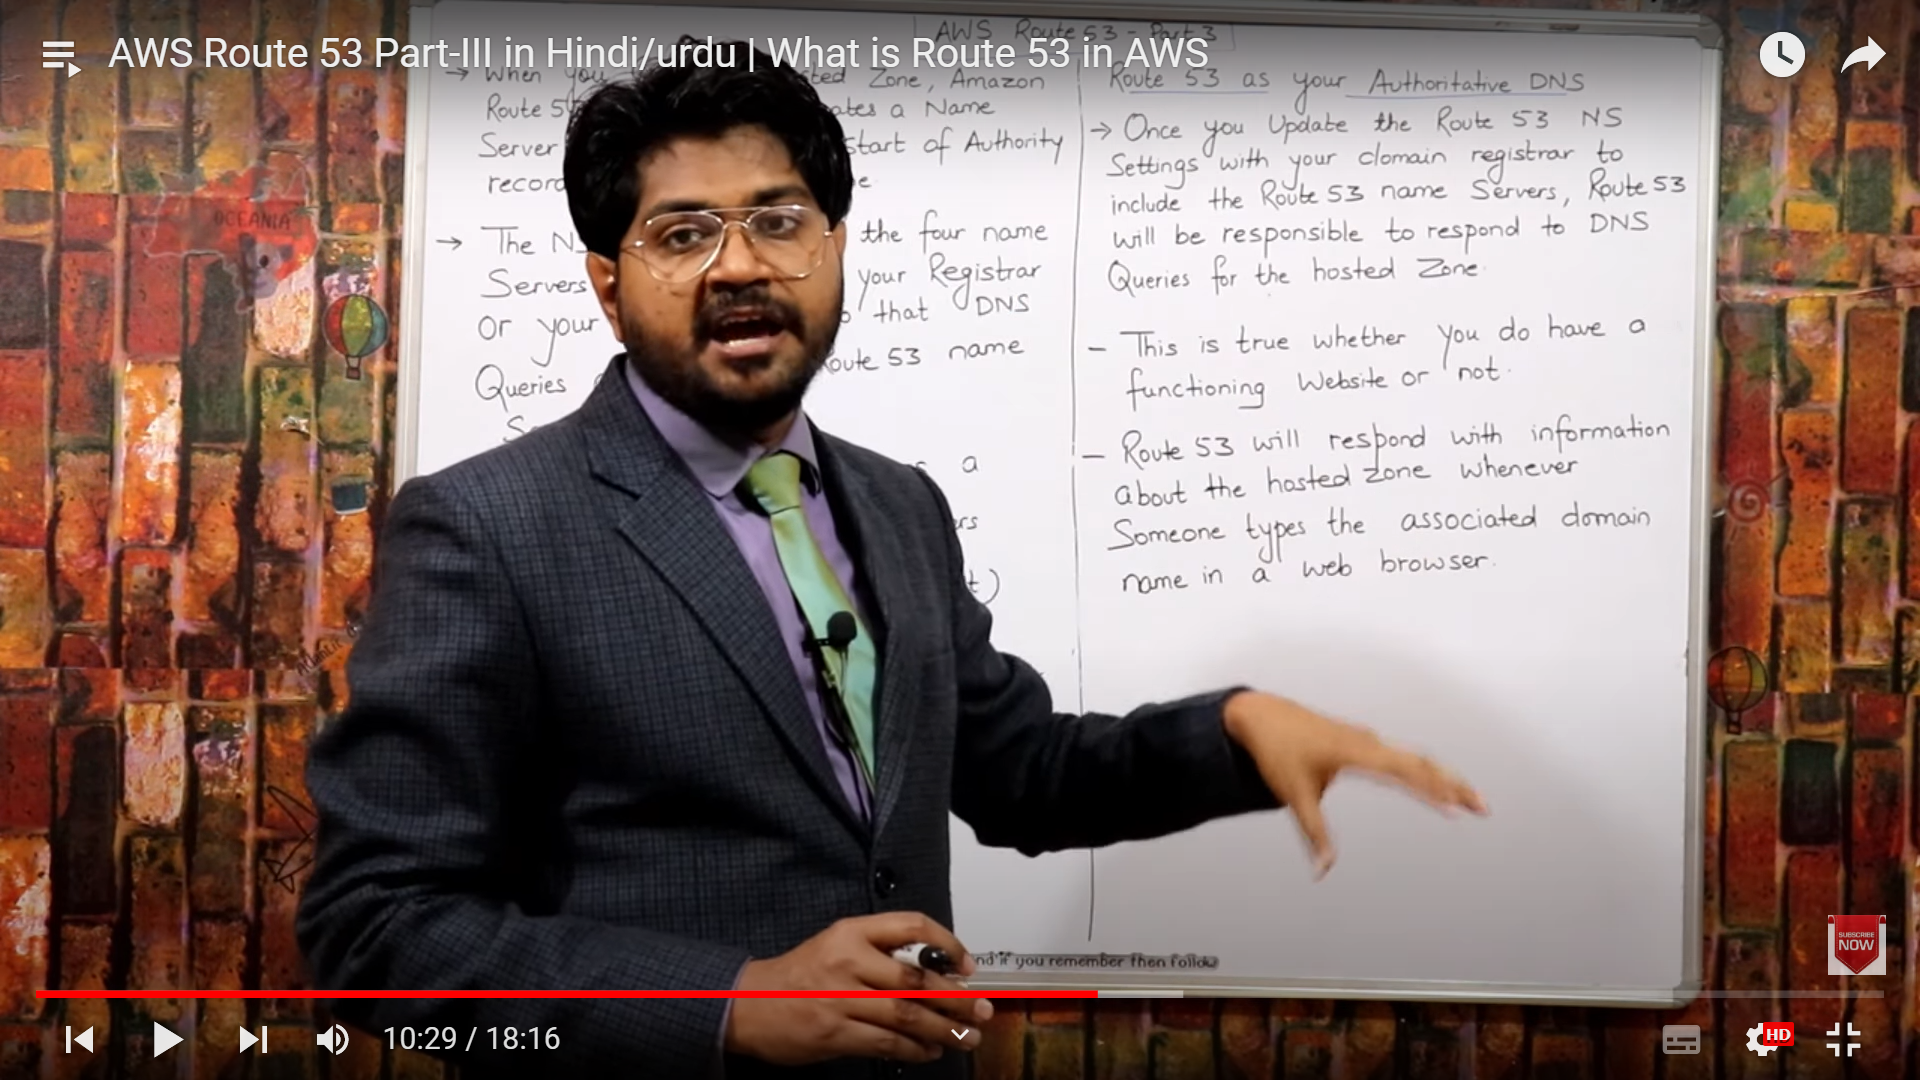 AWS Route 53 Part-III in Hindi/urdu | What is Route 53 in AWS
AWS Route 53 - Part 3
→ When you Zone, Amazon
Route 5 a Name
Server start of Authority
→ The the four name
Servers your Registrar
Or your that DNS
Queries Route 53 name
a
Route 53 as your Authoritative DNS
→ Once you Update the Route 53 NS
Settings with your domain registrar to
include the Route 53 name Servers, Route 53
will be responsible to respond to DNS
Queries for the hosted Zone.
- This is true whether you do have a
functioning Website or not.
- Route 53 will respond with information
about the hosted zone whenever
Someone types the associated domain
name in a web browser.
OCEANIA
if you remember then follow
SUBSCRIBE
NOW
10:29 / 18:16
HD